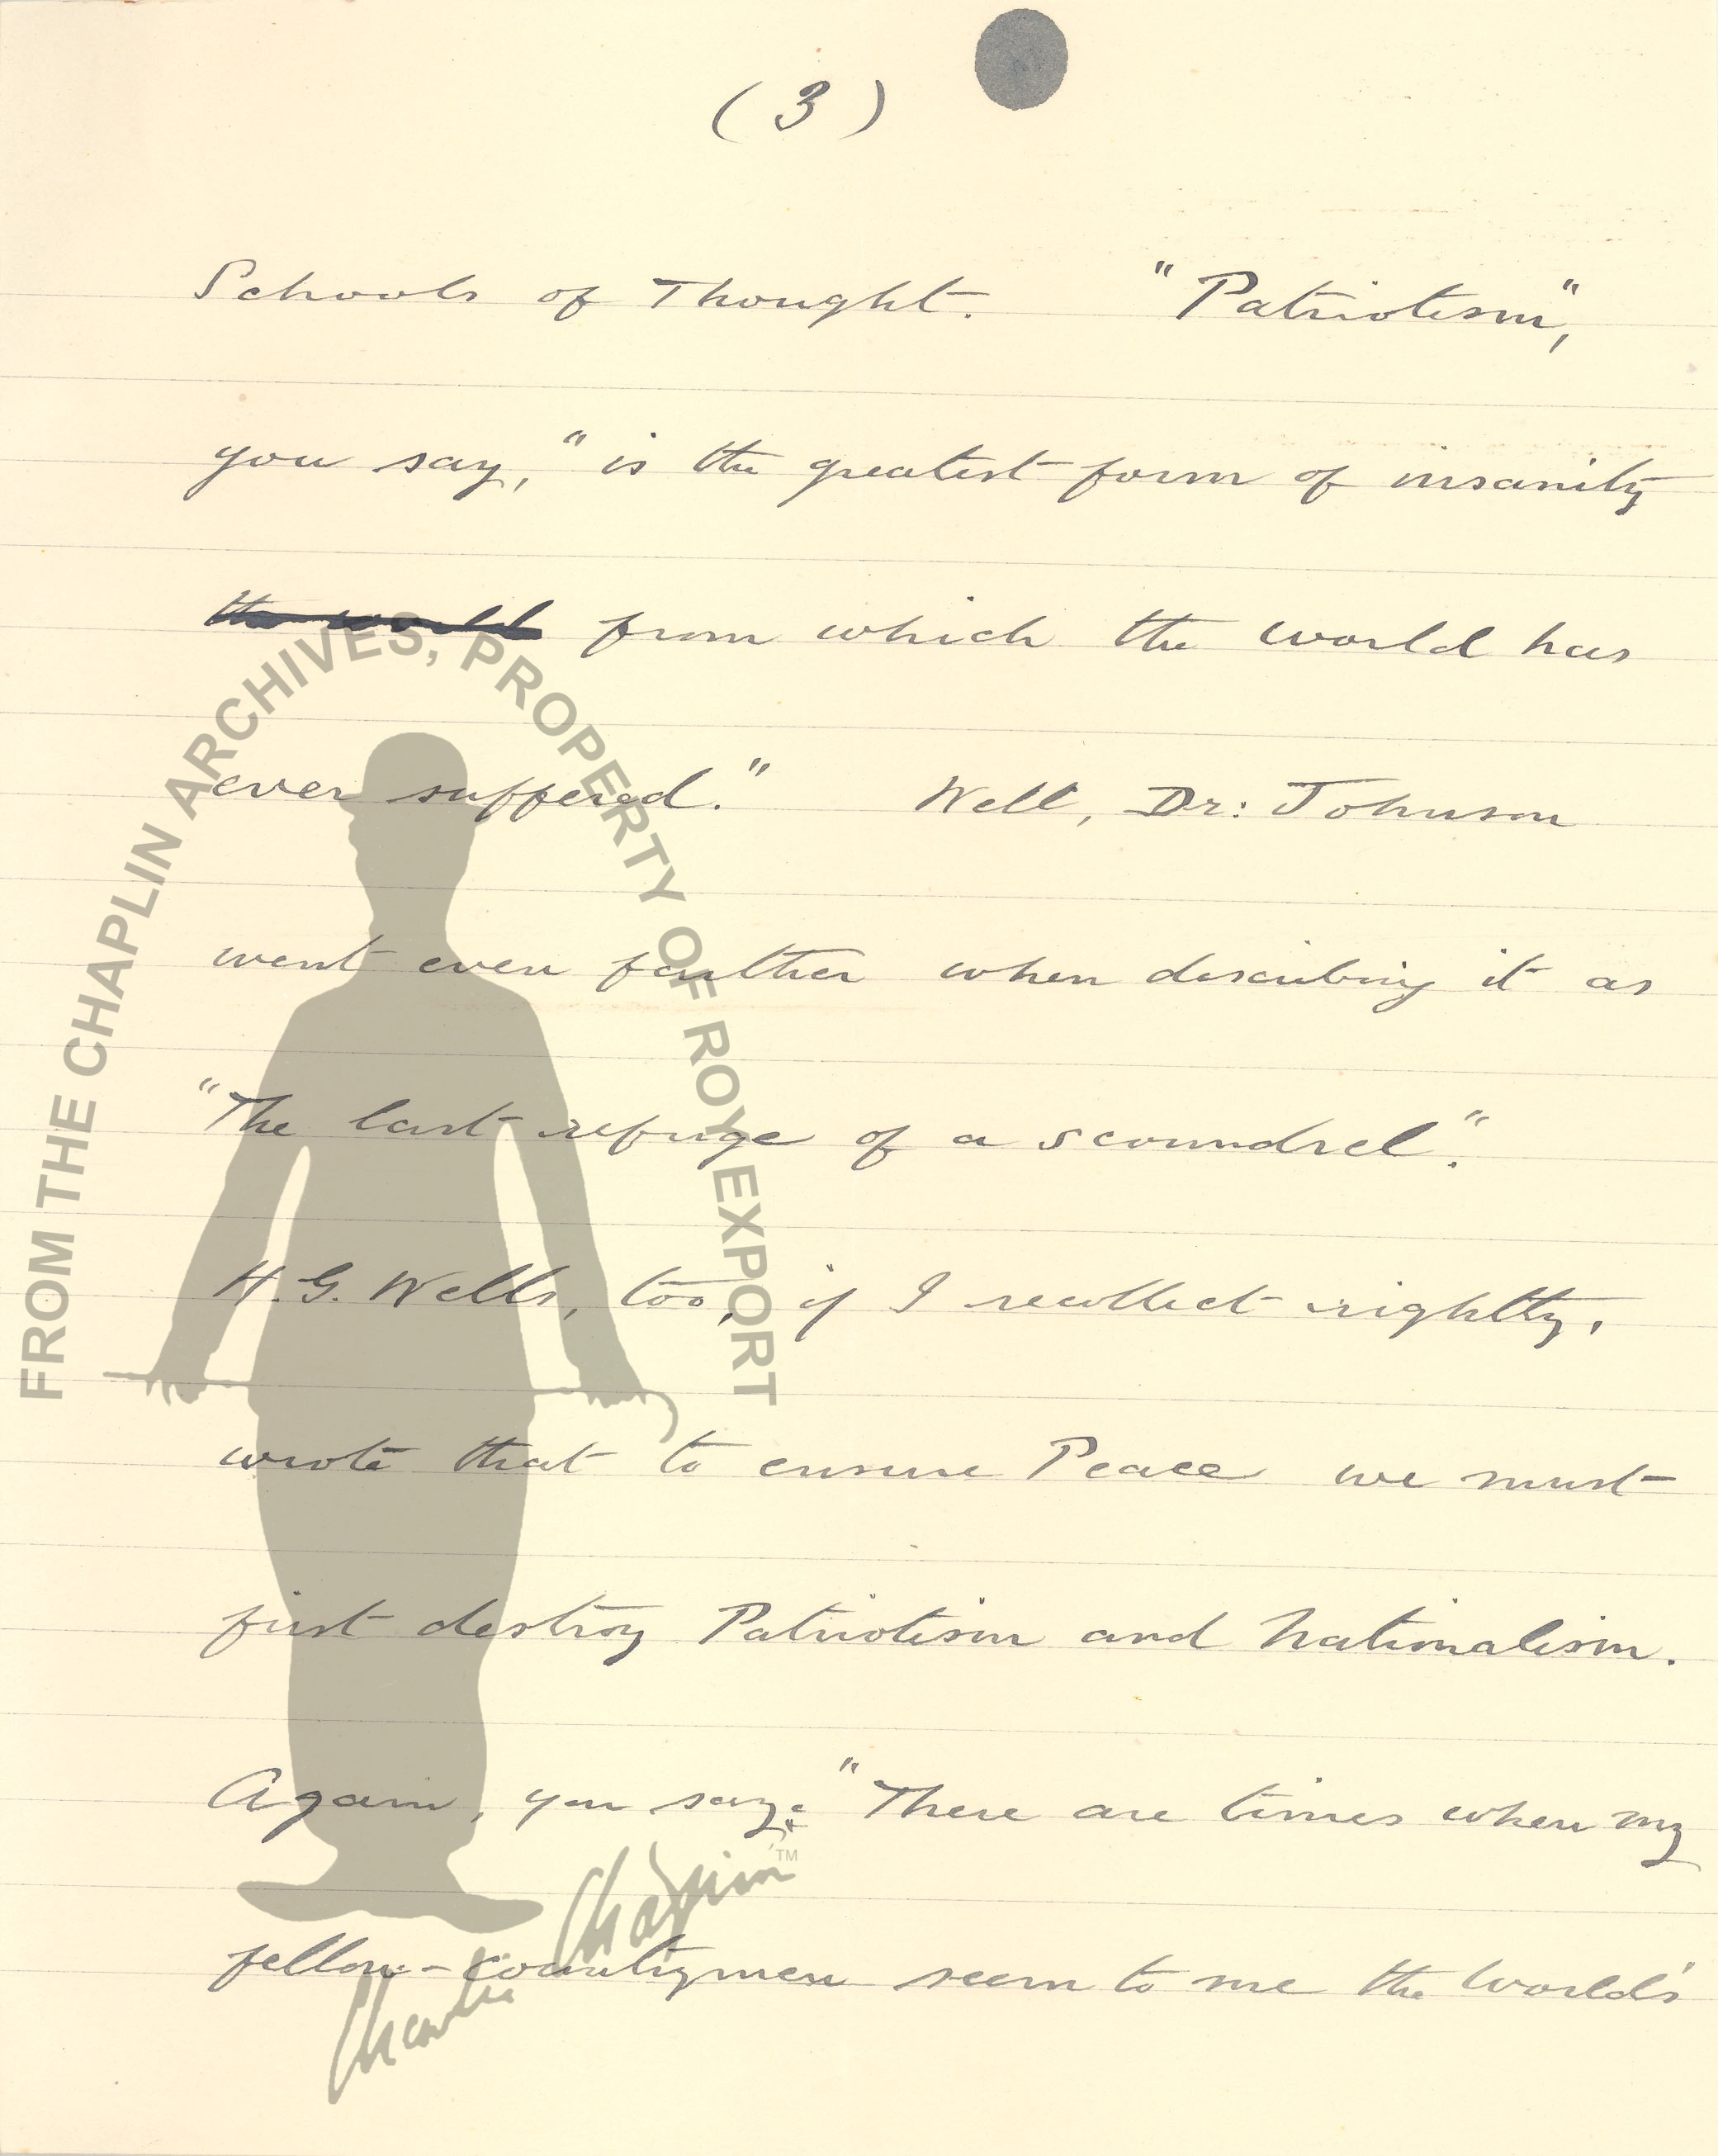 (3)
Schools of Thought. "Patriotism",
you say, "is the greatest form of insanity
the world from which the world has
ever suffered." Well, Dr: Johnson
went even farther when describing it as
"The last refuge of a scoundrel".
H.G. Wells, too, if I recollect rightly,
wrote that to ensure Peace we must
first destroy Patriotism and Nationalism.
Again, you say: "There are times when my
fellow-countrymen seem to me the World's
FROM THE CHAPLIN ARCHIVES, PROPERTY OF ROY EXPORT
Charlie Chaplin TM